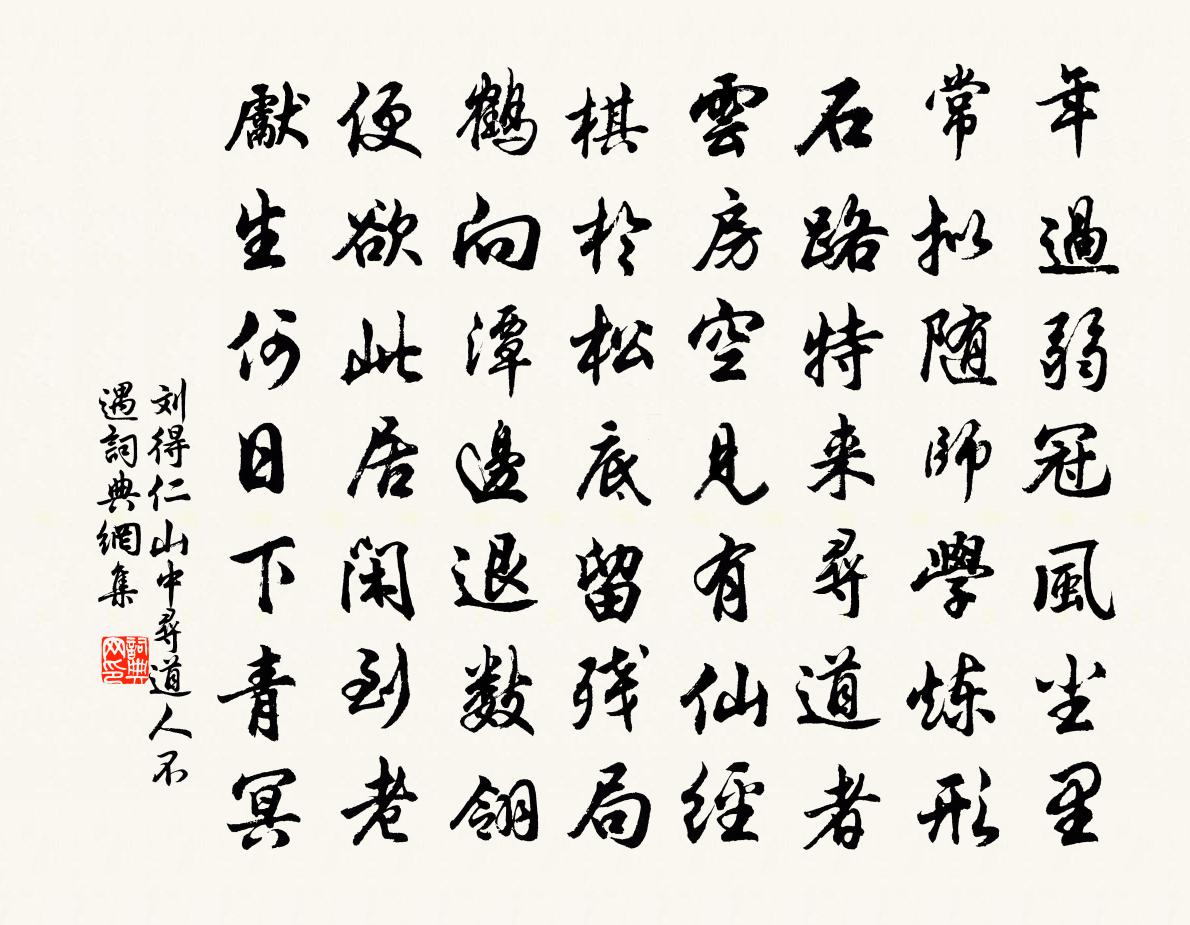 年過弱冠風尘里
常拟随師學炼形
石路特来尋道者
雲房空見有仙經
棋於松底留残局
鶴向潭邊退数翎
便欲此居閑到老
獻生何日下青冥
刘得仁山中尋道人不
遇詞典網集
詞典网印